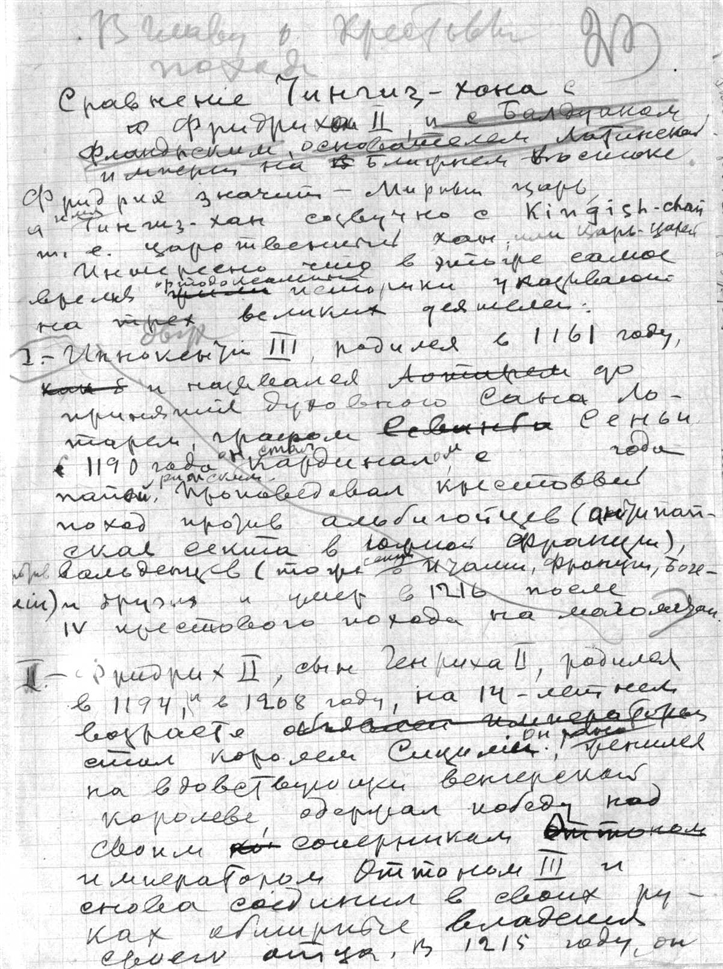 В главу о крестовом
походе
Сравненiе Чингиз-хана с
Фридрихом II, и с Балдуином
Фландрским, основателем Латинской
империи на Ближнем Востоке.
Фридрих значит – Мирный царь,
а имя Чингиз-хан созвучно с Kingish-chan
т. е. царственный хан, или царь-царей
Интересно что в этоже самое
время ортодоксальные историки указывают
на трех двух великих деятелей:
I – Иннокентiй III, родился в 1161 году,
и назывался Лотарем до
принятия духовного сана Ло-
тарем, графом Сеньи
с 1190 года он стал кардиналом, с года
папой римским. Проповедовал крестовый
поход против альбигойцев (антипап-
ская секта в южной Франции),
вальденцев (тоже секта в Италии, Францiи, Боге-
мiи) и других и умер в 1216 после
IV крестового похода на магометан.
II – Фридрих II, сын Генриха II, родился
в 1194, и в 1208 году, на 14-летнем
возрасте объявлен императором
стал королем Сицилiи. он женился
на вдовствующей венгерской
королеве одержал победу над
своим соперником Оттоном
императором Оттоном III и
снова соединил в своих ру-
ках обширные владения
своего отца. В 1215 году, он